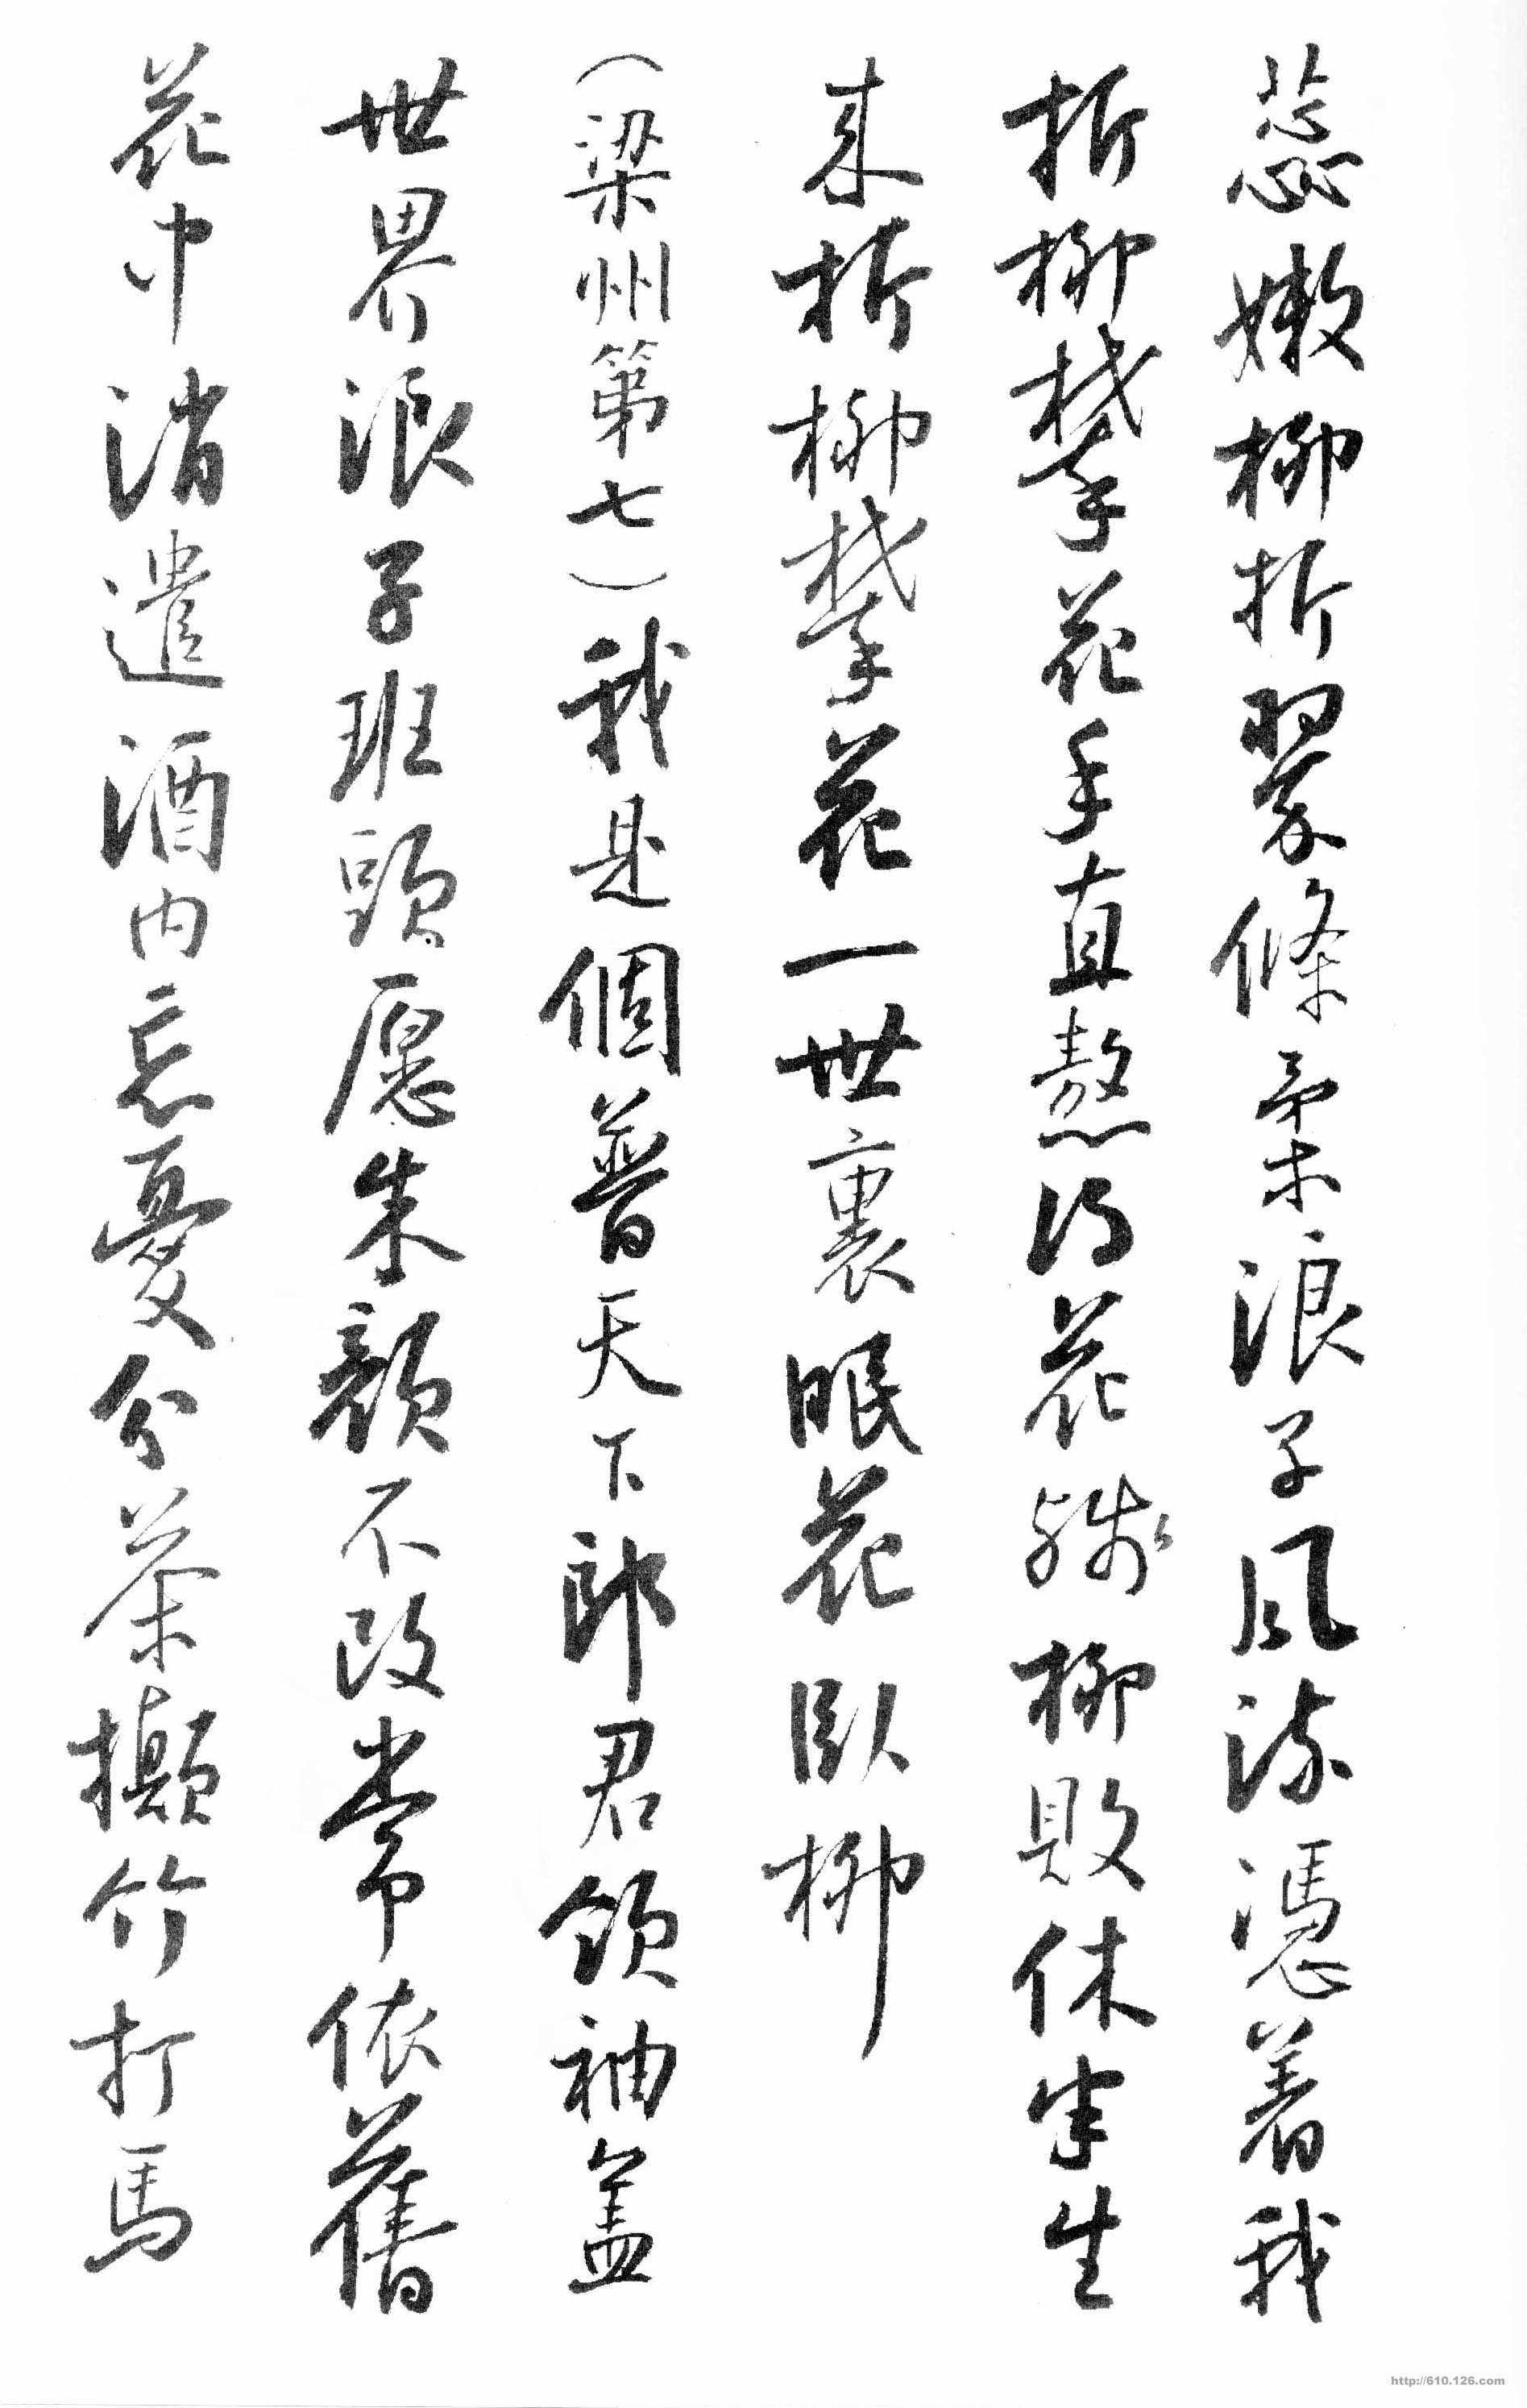 蕊嫩柳折翠條柔浪子風流憑着我
折柳攀花手直熬得花殘柳敗休半生
來折柳攀花一世裏眠花臥柳
（梁州第七）我是個普天下郎君領袖盖
世界浪子班頭愿朱顏不改常依舊
花中消遣酒内忘憂分茶攧竹打馬
http://610.126.com